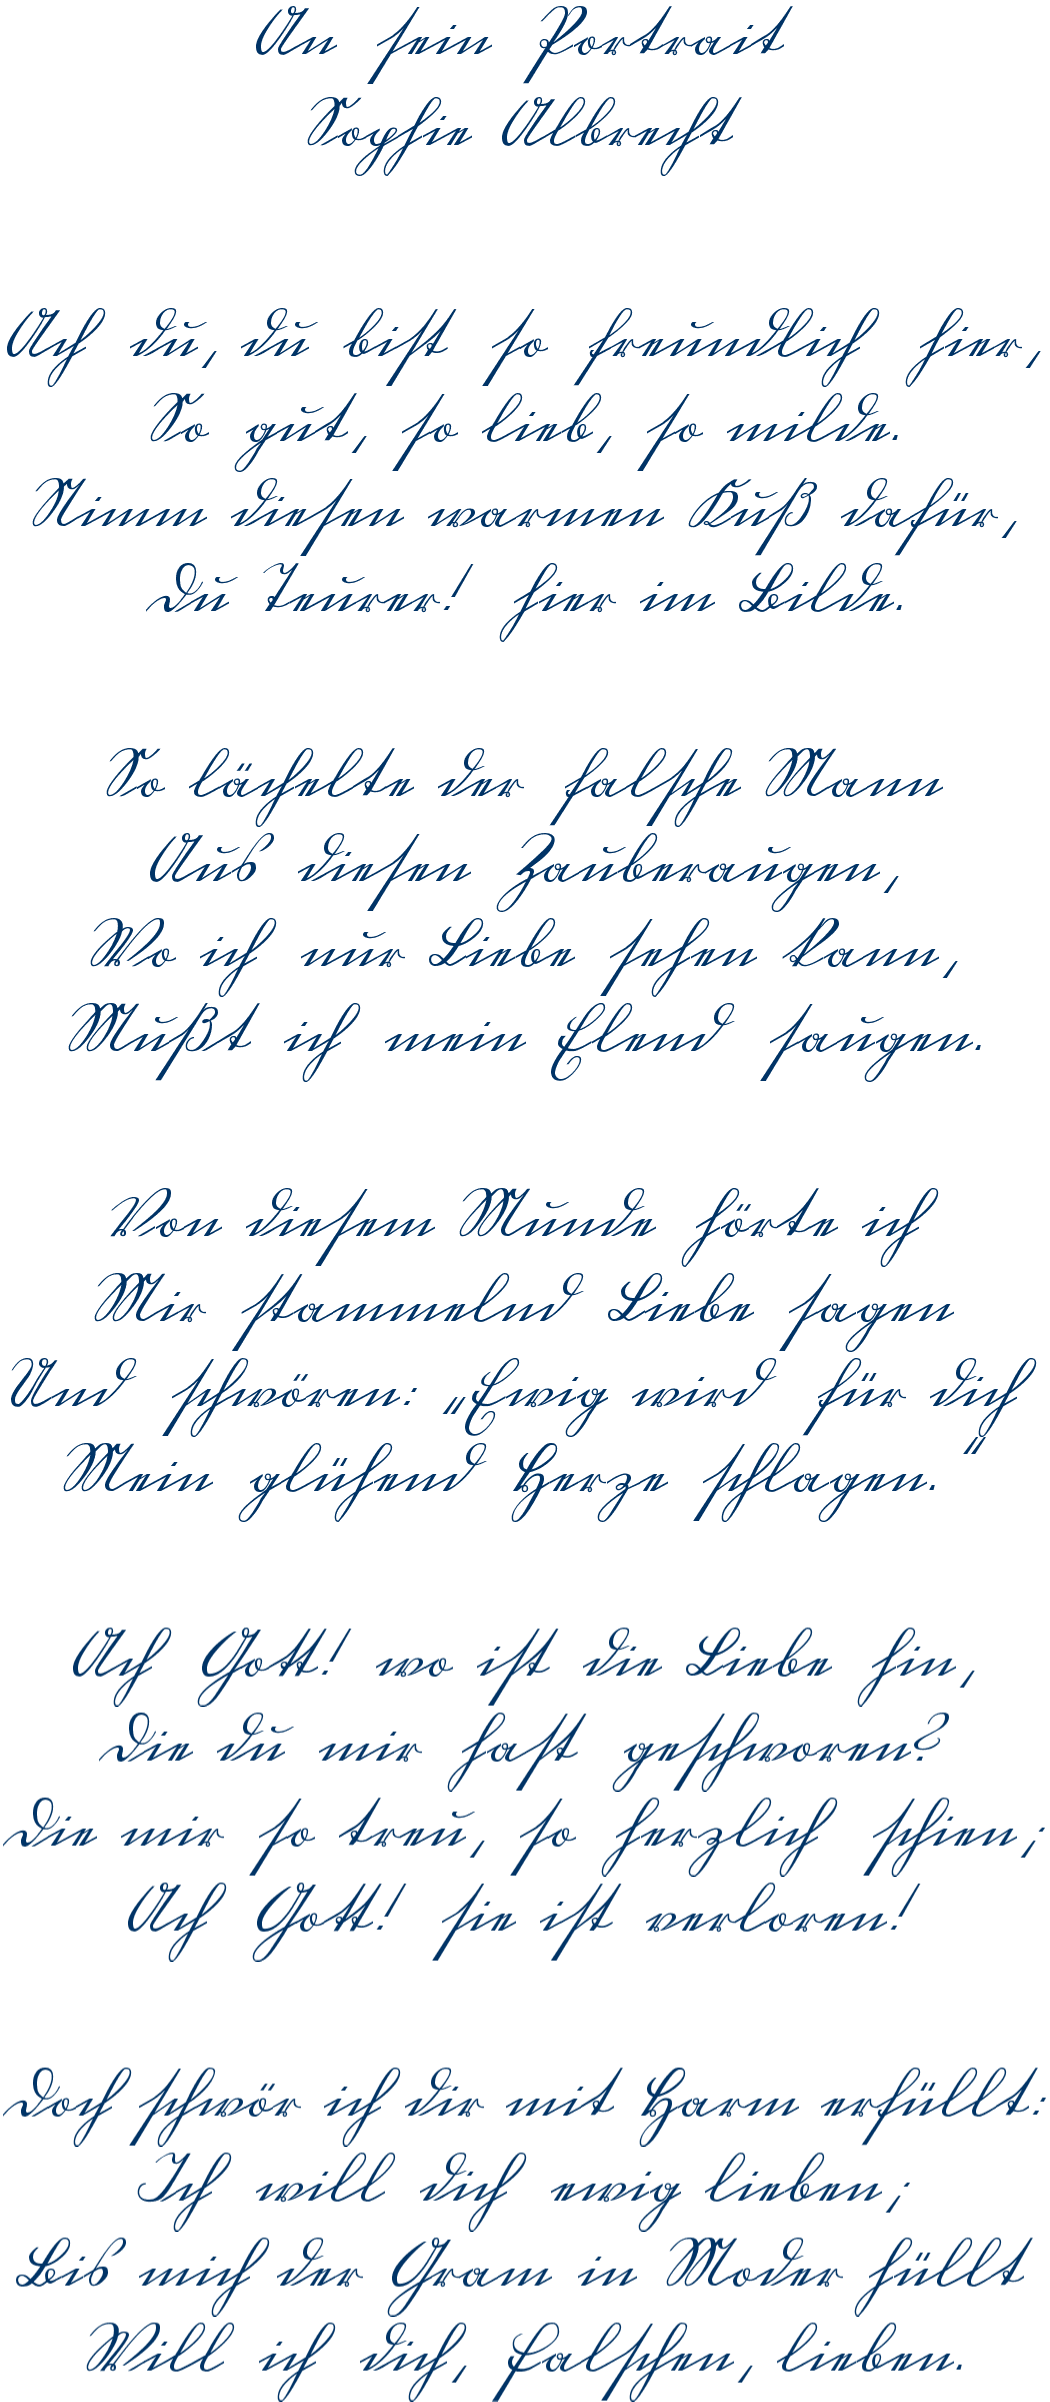 An sein Portrait
Sophie Albrecht
Ach du, du bist so freundlich hier,
So gut, so lieb, so milde.
Nimm diesen warmen Kuß dafür,
Du Teurer! hier im Bilde.
So lächelte der falsche Mann
Aus diesen Zauberaugen,
Wo ich nur Liebe sehen kann,
Mußt ich mein Elend saugen.
Von diesem Munde hörte ich
Mir stammelnd Liebe sagen
Und schwören: „Ewig wird für dich
Mein glühend Herze schlagen.“
Ach Gott! wo ist die Liebe hin,
Die du mir hast geschworen?
Die mir so treu, so herzlich schien;
Ach Gott! sie ist verloren!
Doch schwör ich dir mit Harm erfüllt:
Ich will dich ewig lieben;
Bis mich der Gram in Moder hüllt
Will ich dich, Falschen, lieben.